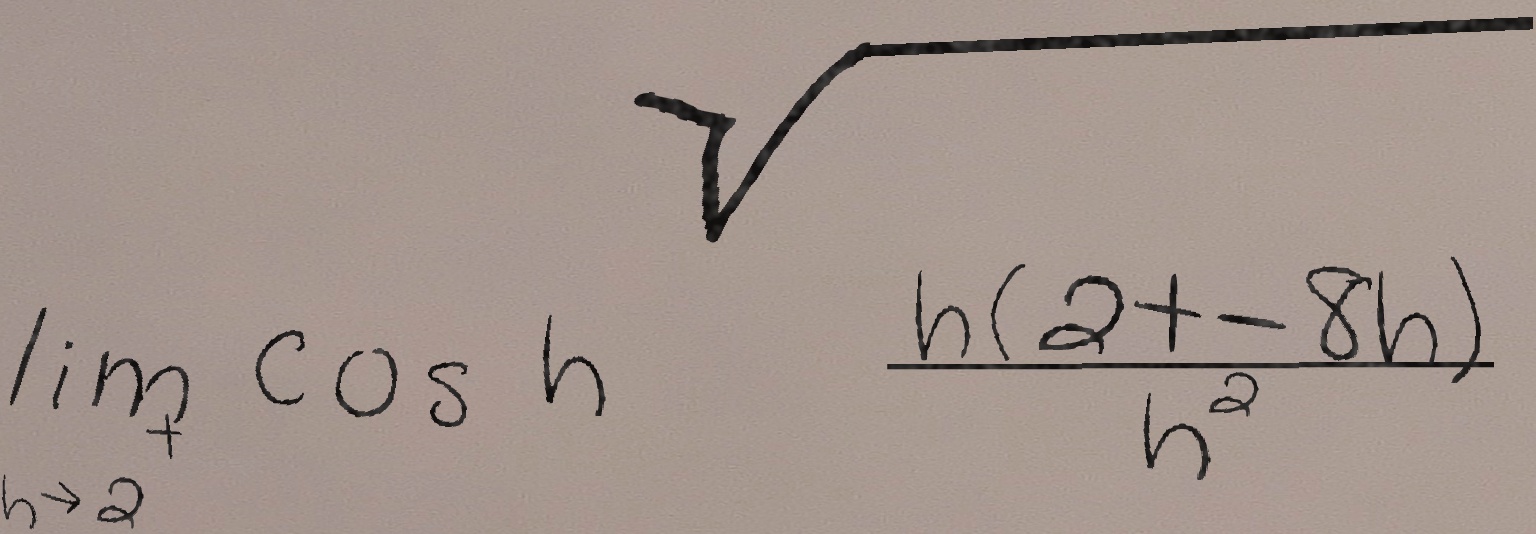 \lim_{h \to 2^+} \cos h \sqrt{\frac{h(2+-8h)}{h^2}}